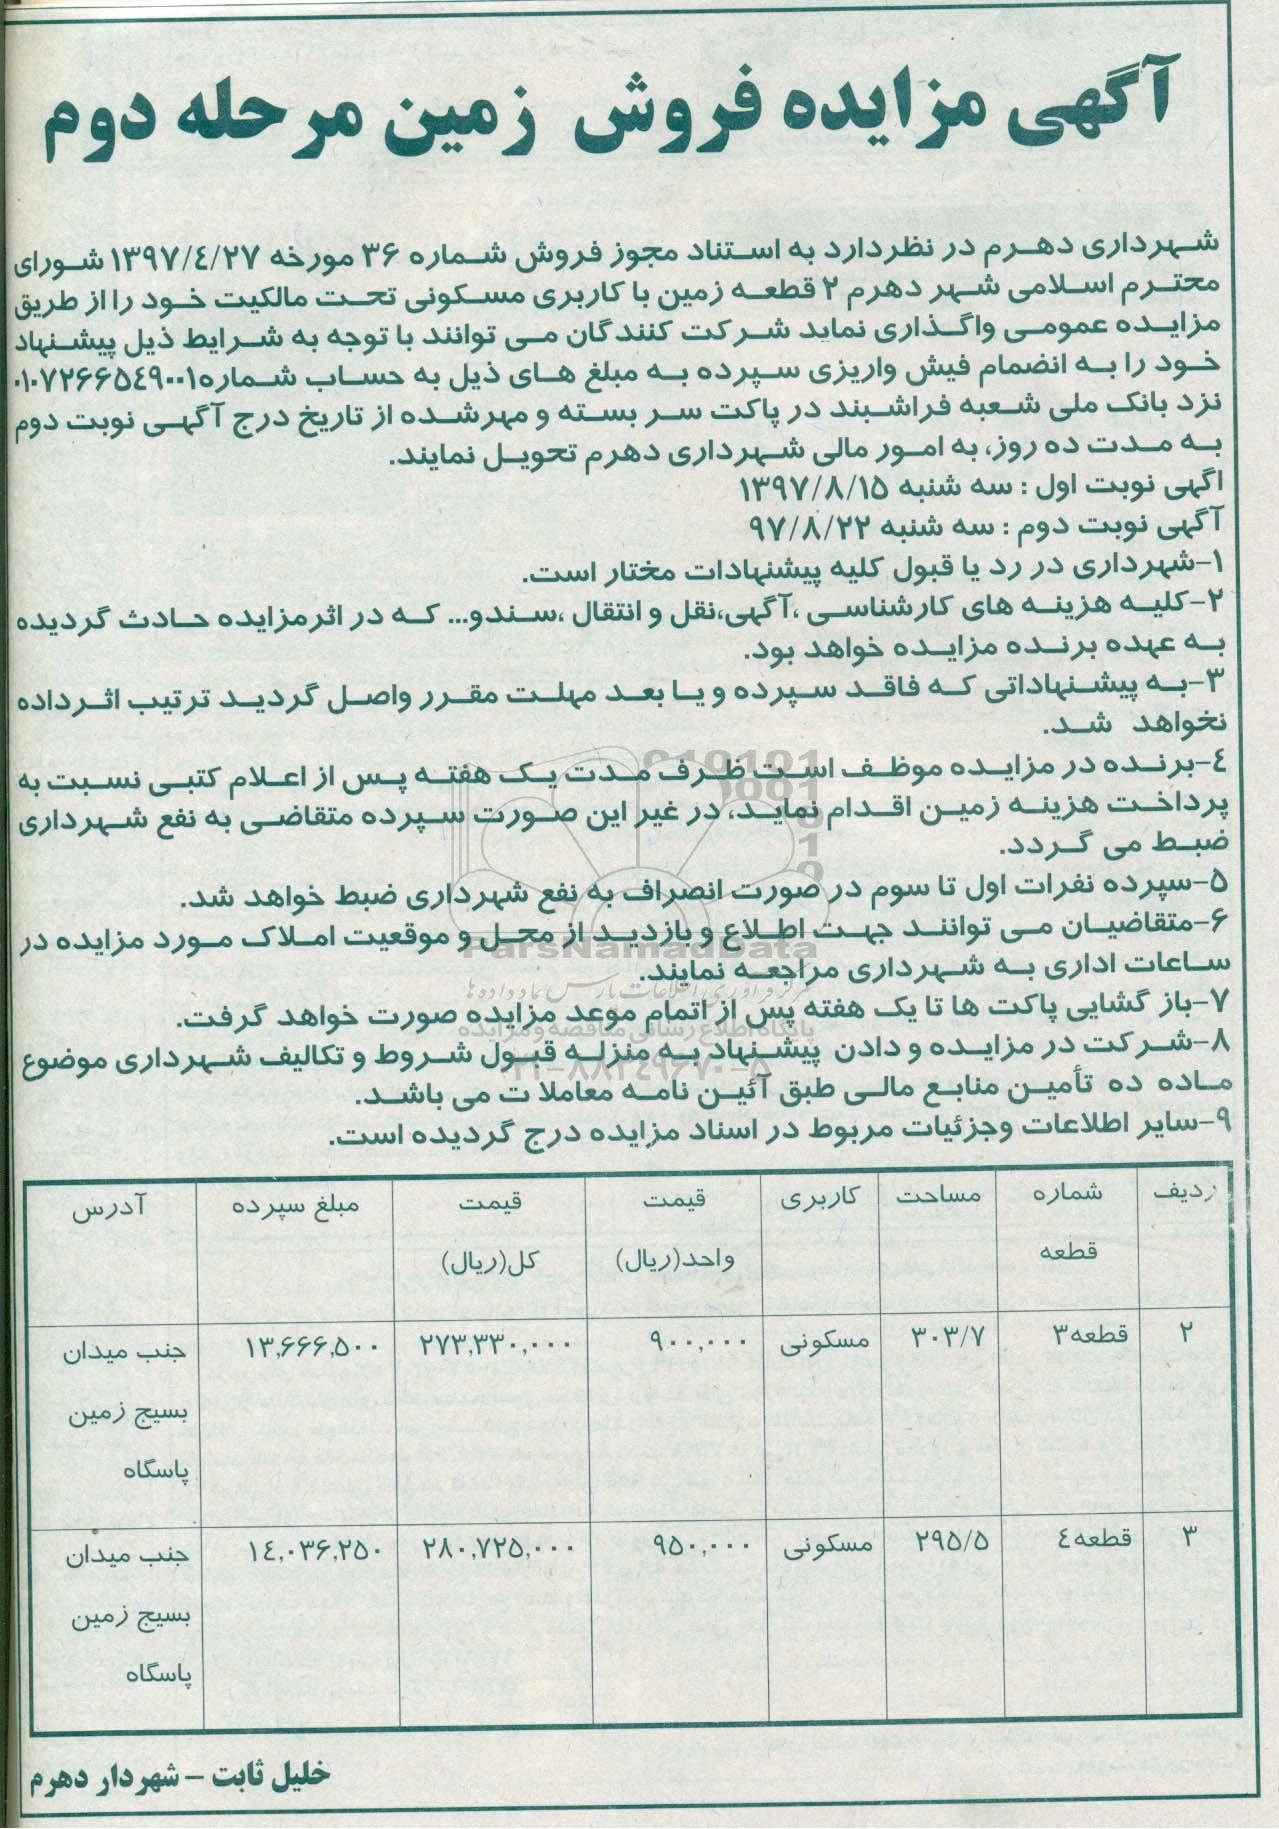 آگهی مزایده فروش زمین مرحله دوم
شهرداری دهرم در نظردارد به استناد مجوز فروش شماره ۳۶ مورخه ۱۳۹۷/٤/۲۷ شورای
محترم اسلامی شهر دهرم ۲ قطعه زمین با کاربری مسکونی تحت مالکیت خود را از طریق
مزایده عمومی واگذاری نماید شرکت کنندگان می توانند با توجه به شرایط ذیل پیشنهاد
خود را به انضمام فیش واریزی سپرده به مبلغ های ذیل به حساب شماره۰۱۰۷۲۶۶۵٤۹۰۰۱
نزد بانک ملی شعبه فراشبند در پاکت سر بسته و مهرشده از تاریخ درج آگهی نوبت دوم
به مدت ده روز، به امور مالی شهرداری دهرم تحویل نمایند.
اگهی نوبت اول : سه شنبه ۱۳۹۷/۸/۱۵
آگهی نوبت دوم : سه شنبه ۹۷/۸/۲۲
۱-شهرداری در رد یا قبول کلیه پیشنهادات مختار است.
۲-کلیه هزینه های کارشناسی ،آگهی،نقل و انتقال ،سندو... که در اثرمزایده حادث گردیده
به عهده برنده مزایده خواهد بود.
۳-به پیشنهاداتی که فاقد سپرده و یا بعد مهلت مقرر واصل گردید ترتیب اثرداده
نخواهد شد.
٤-برنده در مزایده موظف است ظرف مدت یک هفته پس از اعلام کتبی نسبت به
پرداخت هزینه زمین اقدام نماید، در غیر این صورت سپرده متقاضی به نفع شهرداری
ضبط می گردد.
۵-سپرده نفرات اول تا سوم در صورت انصراف به نفع شهرداری ضبط خواهد شد.
۶-متقاضیان می توانند جهت اطلاع و بازدید از محل و موقعیت املاک مورد مزایده در
ساعات اداری به شهرداری مراجعه نمایند.
ParsNamadData
مرکز فرآوری اطلاعات پارس نماد داده ها
۷-باز گشایی پاکت ها تا یک هفته پس از اتمام موعد مزایده صورت خواهد گرفت.
پایگاه اطلاع رسانی مناقصه و مزایده
۸-شرکت در مزایده و دادن پیشنهاد به منزله قبول شروط و تکالیف شهرداری موضوع
۰۲۱-۸۸۳٤۹۶۷۰-۵
ماده ده تأمین منابع مالی طبق آئین نامه معاملا ت می باشد.
۹-سایر اطلاعات وجزئیات مربوط در اسناد مزایده درج گردیده است.
ردیف شماره قطعه مساحت کاربری قیمت واحد(ریال) قیمت کل(ریال) مبلغ سپرده آدرس
۲ قطعه۳ ۳۰۳/۷ مسکونی ۹۰۰,۰۰۰ ۲۷۳,۳۳۰,۰۰۰ ۱۳,۶۶۶,۵۰۰ جنب میدان
بسیج زمین
پاسگاه
۳ قطعه٤ ۲۹۵/۵ مسکونی ۹۵۰,۰۰۰ ۲۸۰,۷۲۵,۰۰۰ ۱٤,۰۳۶,۲۵۰ جنب میدان
بسیج زمین
پاسگاه
خلیل ثابت – شهردار دهرم